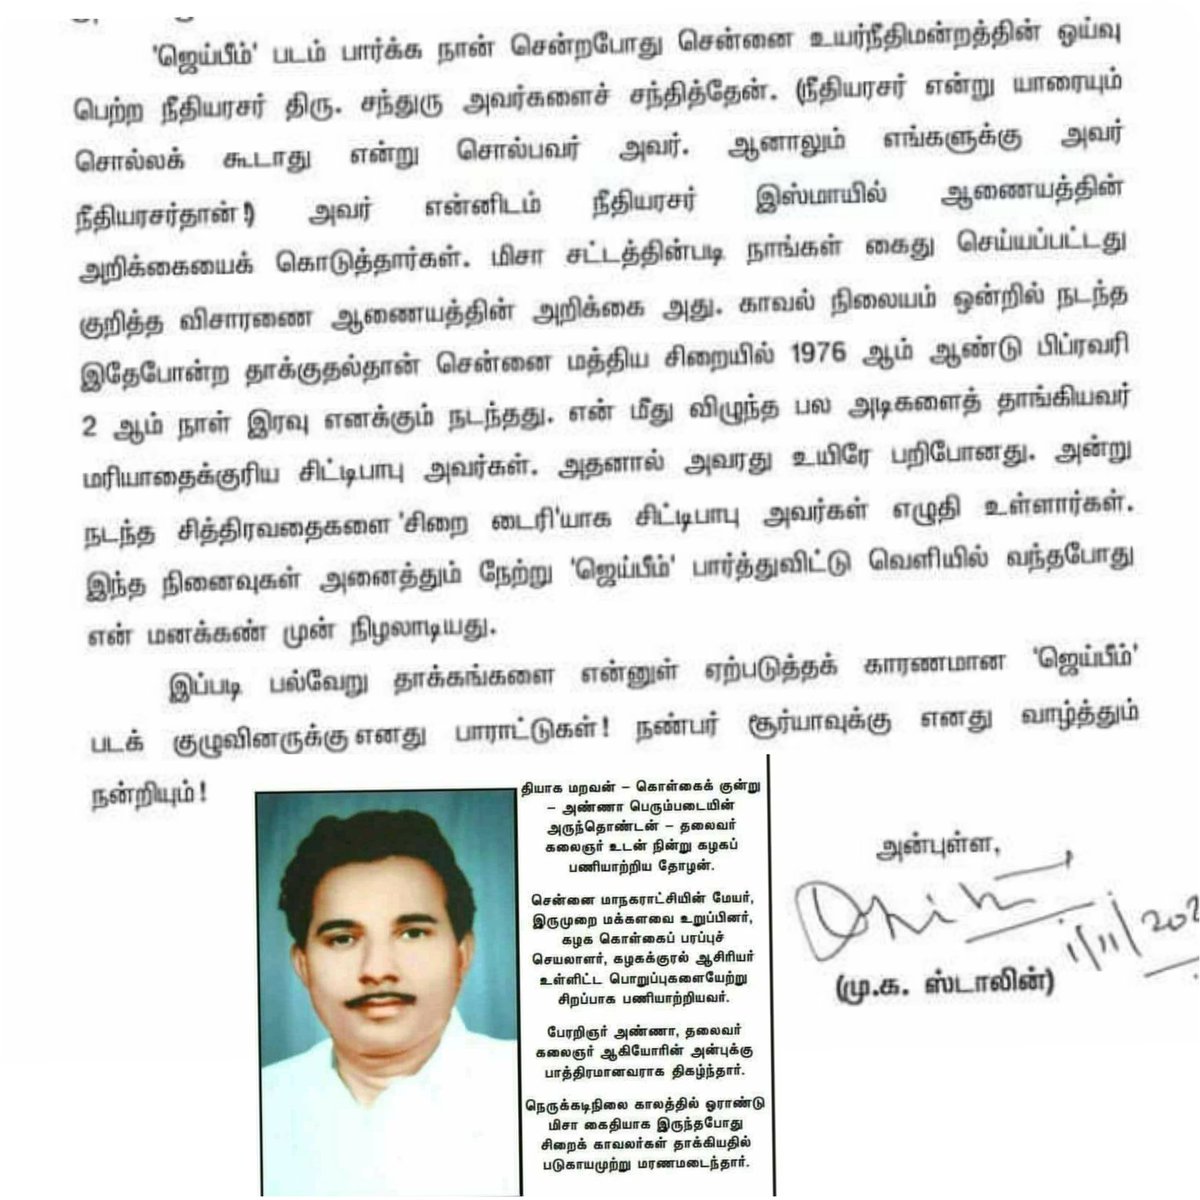 'ஜெய்பீம்' படம் பார்க்க நான் சென்றபோது சென்னை உயர்நீதிமன்றத்தின் ஓய்வு
பெற்ற நீதியரசர் திரு. சந்துரு அவர்களைச் சந்தித்தேன். (நீதியரசர் என்று யாரையும்
சொல்லக் கூடாது என்று சொல்பவர் அவர். ஆனாலும் எங்களுக்கு அவர்
நீதியரசர்தான்!) அவர் என்னிடம் நீதியரசர் இஸ்மாயில் ஆணையத்தின்
அறிக்கையைக் கொடுத்தார்கள். மிசா சட்டத்தின்படி நாங்கள் கைது செய்யப்பட்டது
குறித்த விசாரணை ஆணையத்தின் அறிக்கை அது. காவல் நிலையம் ஒன்றில் நடந்த
இதேபோன்ற தாக்குதல்தான் சென்னை மத்திய சிறையில் 1976 ஆம் ஆண்டு பிப்ரவரி
2 ஆம் நாள் இரவு எனக்கும் நடந்தது. என் மீது விழுந்த பல அடிகளைத் தாங்கியவர்
மரியாதைக்குரிய சிட்டிபாபு அவர்கள். அதனால் அவரது உயிரே பறிபோனது. அன்று
நடந்த சித்திரவதைகளை 'சிறை டைரி'யாக சிட்டிபாபு அவர்கள் எழுதி உள்ளார்கள்.
இந்த நினைவுகள் அனைத்தும் நேற்று 'ஜெய்பீம்' பார்த்துவிட்டு வெளியில் வந்தபோது
என் மனக்கண் முன் நிழலாடியது.
இப்படி பல்வேறு தாக்கங்களை என்னுள் ஏற்படுத்தக் காரணமான 'ஜெய்பீம்'
படக் குழுவினருக்கு எனது பாராட்டுகள்! நண்பர் சூர்யாவுக்கு எனது வாழ்த்தும்
நன்றியும்!
தியாக மறவன் – கொள்கைக் குன்று
– அண்ணா பெரும்படையின்
அருந்தொண்டன் – தலைவர்
கலைஞர் உடன் நின்று கழகப்
பணியாற்றிய தோழன்.
சென்னை மாநகராட்சியின் மேயர்,
இருமுறை மக்களவை உறுப்பினர்,
கழக கொள்கைப் பரப்புச்
செயலாளர், கழகக்குரல் ஆசிரியர்
உள்ளிட்ட பொறுப்புகளையேற்று
சிறப்பாக பணியாற்றியவர்.
பேரறிஞர் அண்ணா, தலைவர்
கலைஞர் ஆகியோரின் அன்புக்கு
பாத்திரமானவராக திகழ்ந்தார்.
நெருக்கடிநிலை காலத்தில் ஓராண்டு
மிசா கைதியாக இருந்தபோது
சிறைக் காவலர்கள் தாக்கியதில்
படுகாயமுற்று மரணமடைந்தார்.
அன்புள்ள,
1/11/202
(மு.க. ஸ்டாலின்)